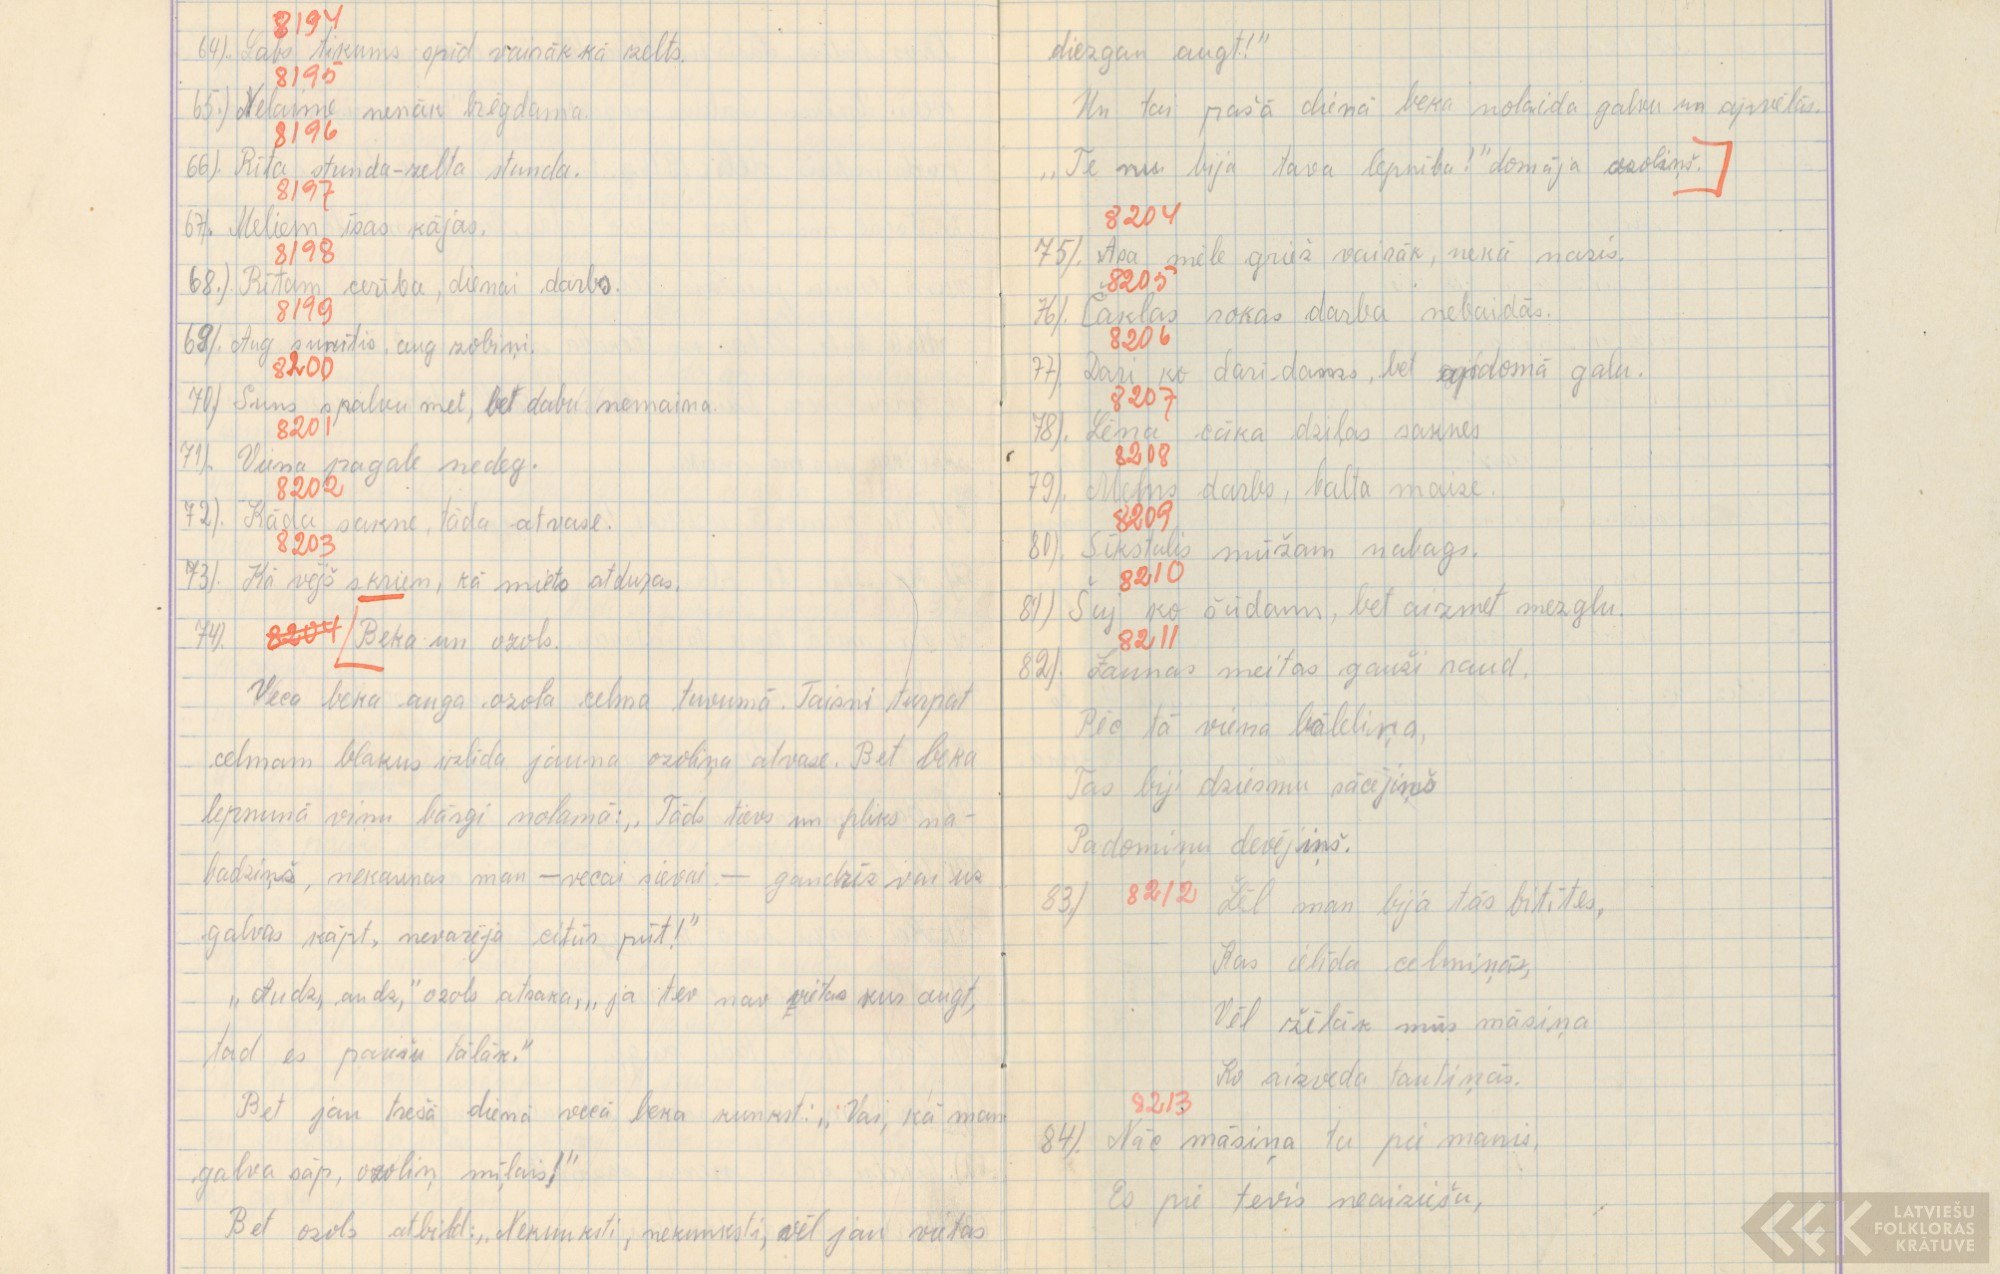 8194
64). Labs tikums spīd vairāk kā zelts.
8195
65.) Nelaime nenāk brēgdama.
8196
66). Rīta stunda-zelta stunda.
8197
67). Meliem īsas kājas.
8198
68.) Rītam cerība, dienai darbs.
8199
69). Aug sunītis, aug zobiņi.
8200
70) Suns spalvu met, bet dabu nemaina.
8201
71). Viena pagale nedeg.
8202
72). Kāda sakne, tāda atvase.
8203
73). Kā vējš skrien, kā miets atduras.
74). 8204 Beka un ozols.
Veca beka auga ozola celma tuvumā. Taisni turpat
celmam blakus izlīda jauna ozoliņa atvase. Bet beka
lepnumā viņu bārgi nolamā: „Tāds tievs un pliks na-
badziņš, nekaunas man — vecai sievai — gandrīz vai uz
galvas kāpt, nevarēja citur pūt!"
„Audz, audz," ozols atsaka, „ja tev nav vietas kur augt,
tad es pariešu tālāk."
Bet jau trešā dienā vecā beka kunkst: „Vai, kā man
galva sāp, ozoliņ mīļais!"
Bet ozols atbild: „Nekunksti, nekunksti, vēl jau vietas
diezgan augt!"
Un tai pašā dienā beka nolaida galvu un apvēlās.
„Te nu bija tava lepnība!" domāja ozoliņš.
8204
75). Asa mēle griež vairāk, nekā nazis.
8205
76). Čaklas rokas darba nebaidās.
8206
77). Dari ko darīdams, bet apdomā galu.
8207
78). Lēna cūka dziļas saknes
8208
79). Melns darbs, balta maize.
8209
80). Sīkstulis mūžam nabags.
8210
81) Šuj ko šūdams, bet aizmet mezglu.
8211
82). Jaunas meitas gauži raud,
Pēc tā viena bāleliņa,
Tas bij dziesmu sācējiņš
Padomiņu devējiņš.
83) 8212 Žēl man bija tās bitītes,
Kas ielīda celmiņās,
Vēl žēlāk mūs māsiņa
Ko aizveda tautiņās.
8213
84). Nāc māsiņa tu pie manis,
Es pie tevis neaiziešu,
LATVIEŠU
FOLKLORAS
KRĀTUVE